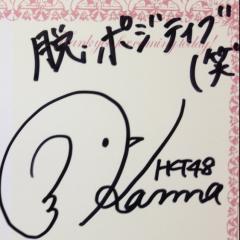 脱・ポジティブ
(笑
HKT48
Kanna